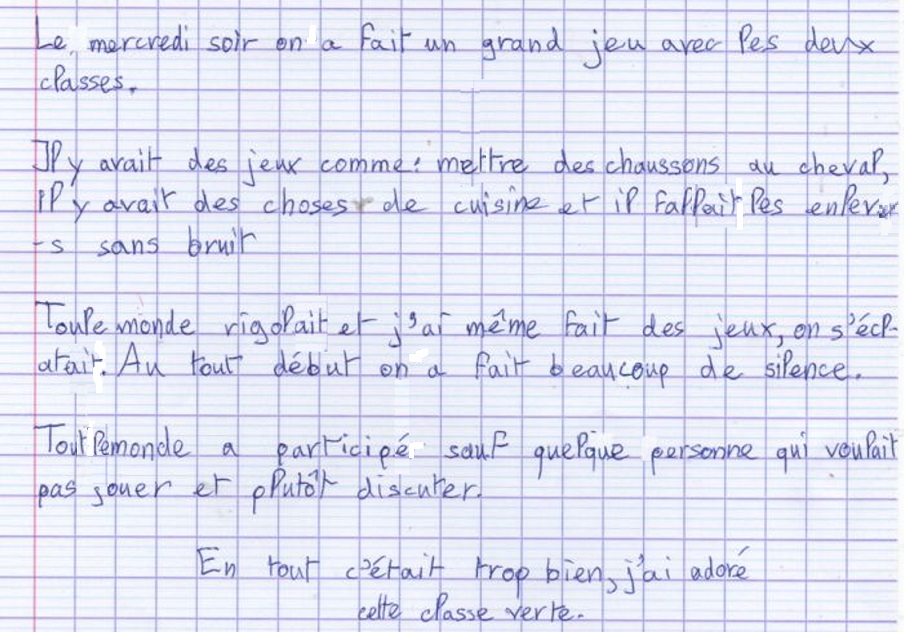 Le mercredi soir on a fait un grand jeu avec les deux
classes.
Il y avait des jeux comme: mettre des chaussons au cheval,
il y avait des choses de cuisine et il fallait les enlever
-s sans bruit
Tout le monde rigolait et j'ai même fait des jeux, on s'écl-
atait. Au tout début on a fait beaucoup de silence.
Tout le monde a participé sauf quelque personne qui voulait
pas jouer et plutôt discuter.
En tout c'était trop bien, j'ai adoré
cette classe verte.